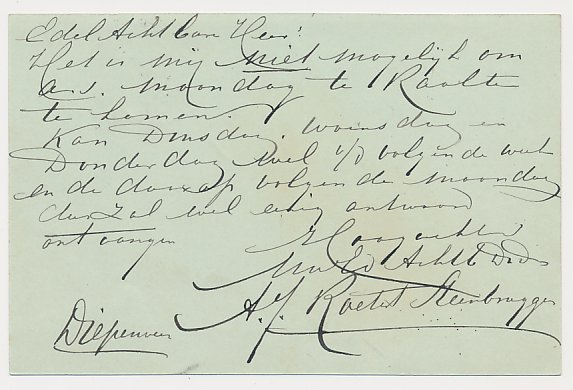 Edel Achtbare Heer!
Het is mij niet mogelijk om
a.s. Maandag te Raalte
te komen.
Kan Dinsdag, Woensdag en
Donderdag wel v/d volgende week
en de daarop volgende Maandag
dus zal wel eenig antwoord
ontvangen
Hoogachtend
UwEd Achtb Dr
A.J. Roetert Steenbruggen
Diepenveen